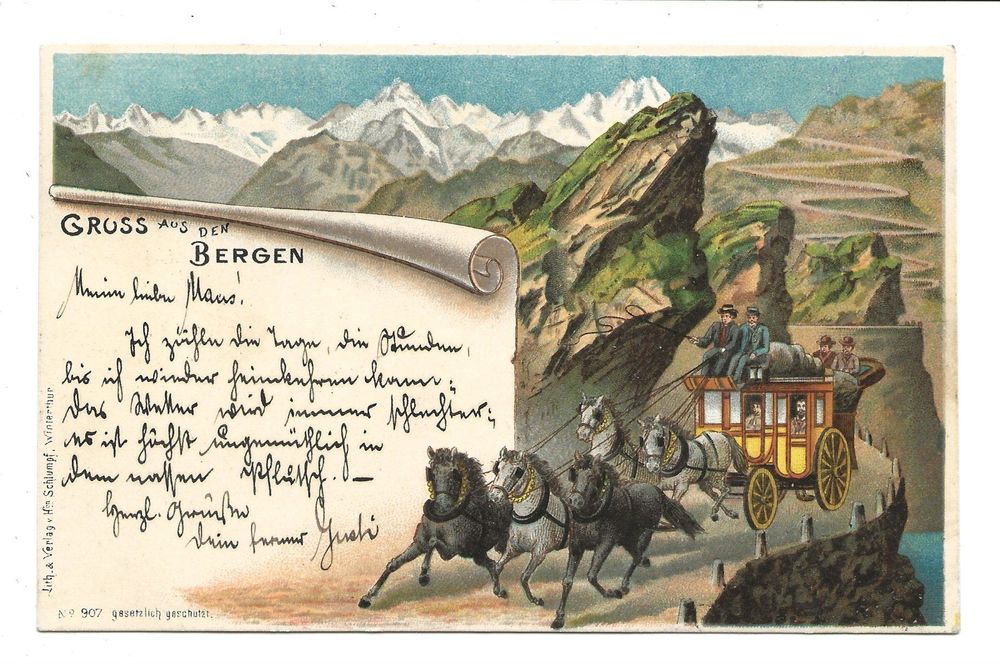 GRUSS AUS DEN
BERGEN
Meine liebe Maus!
Ich zähle die Tage, die Stunden,
bis ich wieder heimkehren kann;
das Wetter wird immer schlechter;
es ist höchst ungemüthlich in
dem nassen Pflutsch. –
Herzl. Grüße
Dein ferner Gusti
Lith. & Verlag v. Hch Schlumpf, Winterthur
No 907 gesetzlich geschützt.